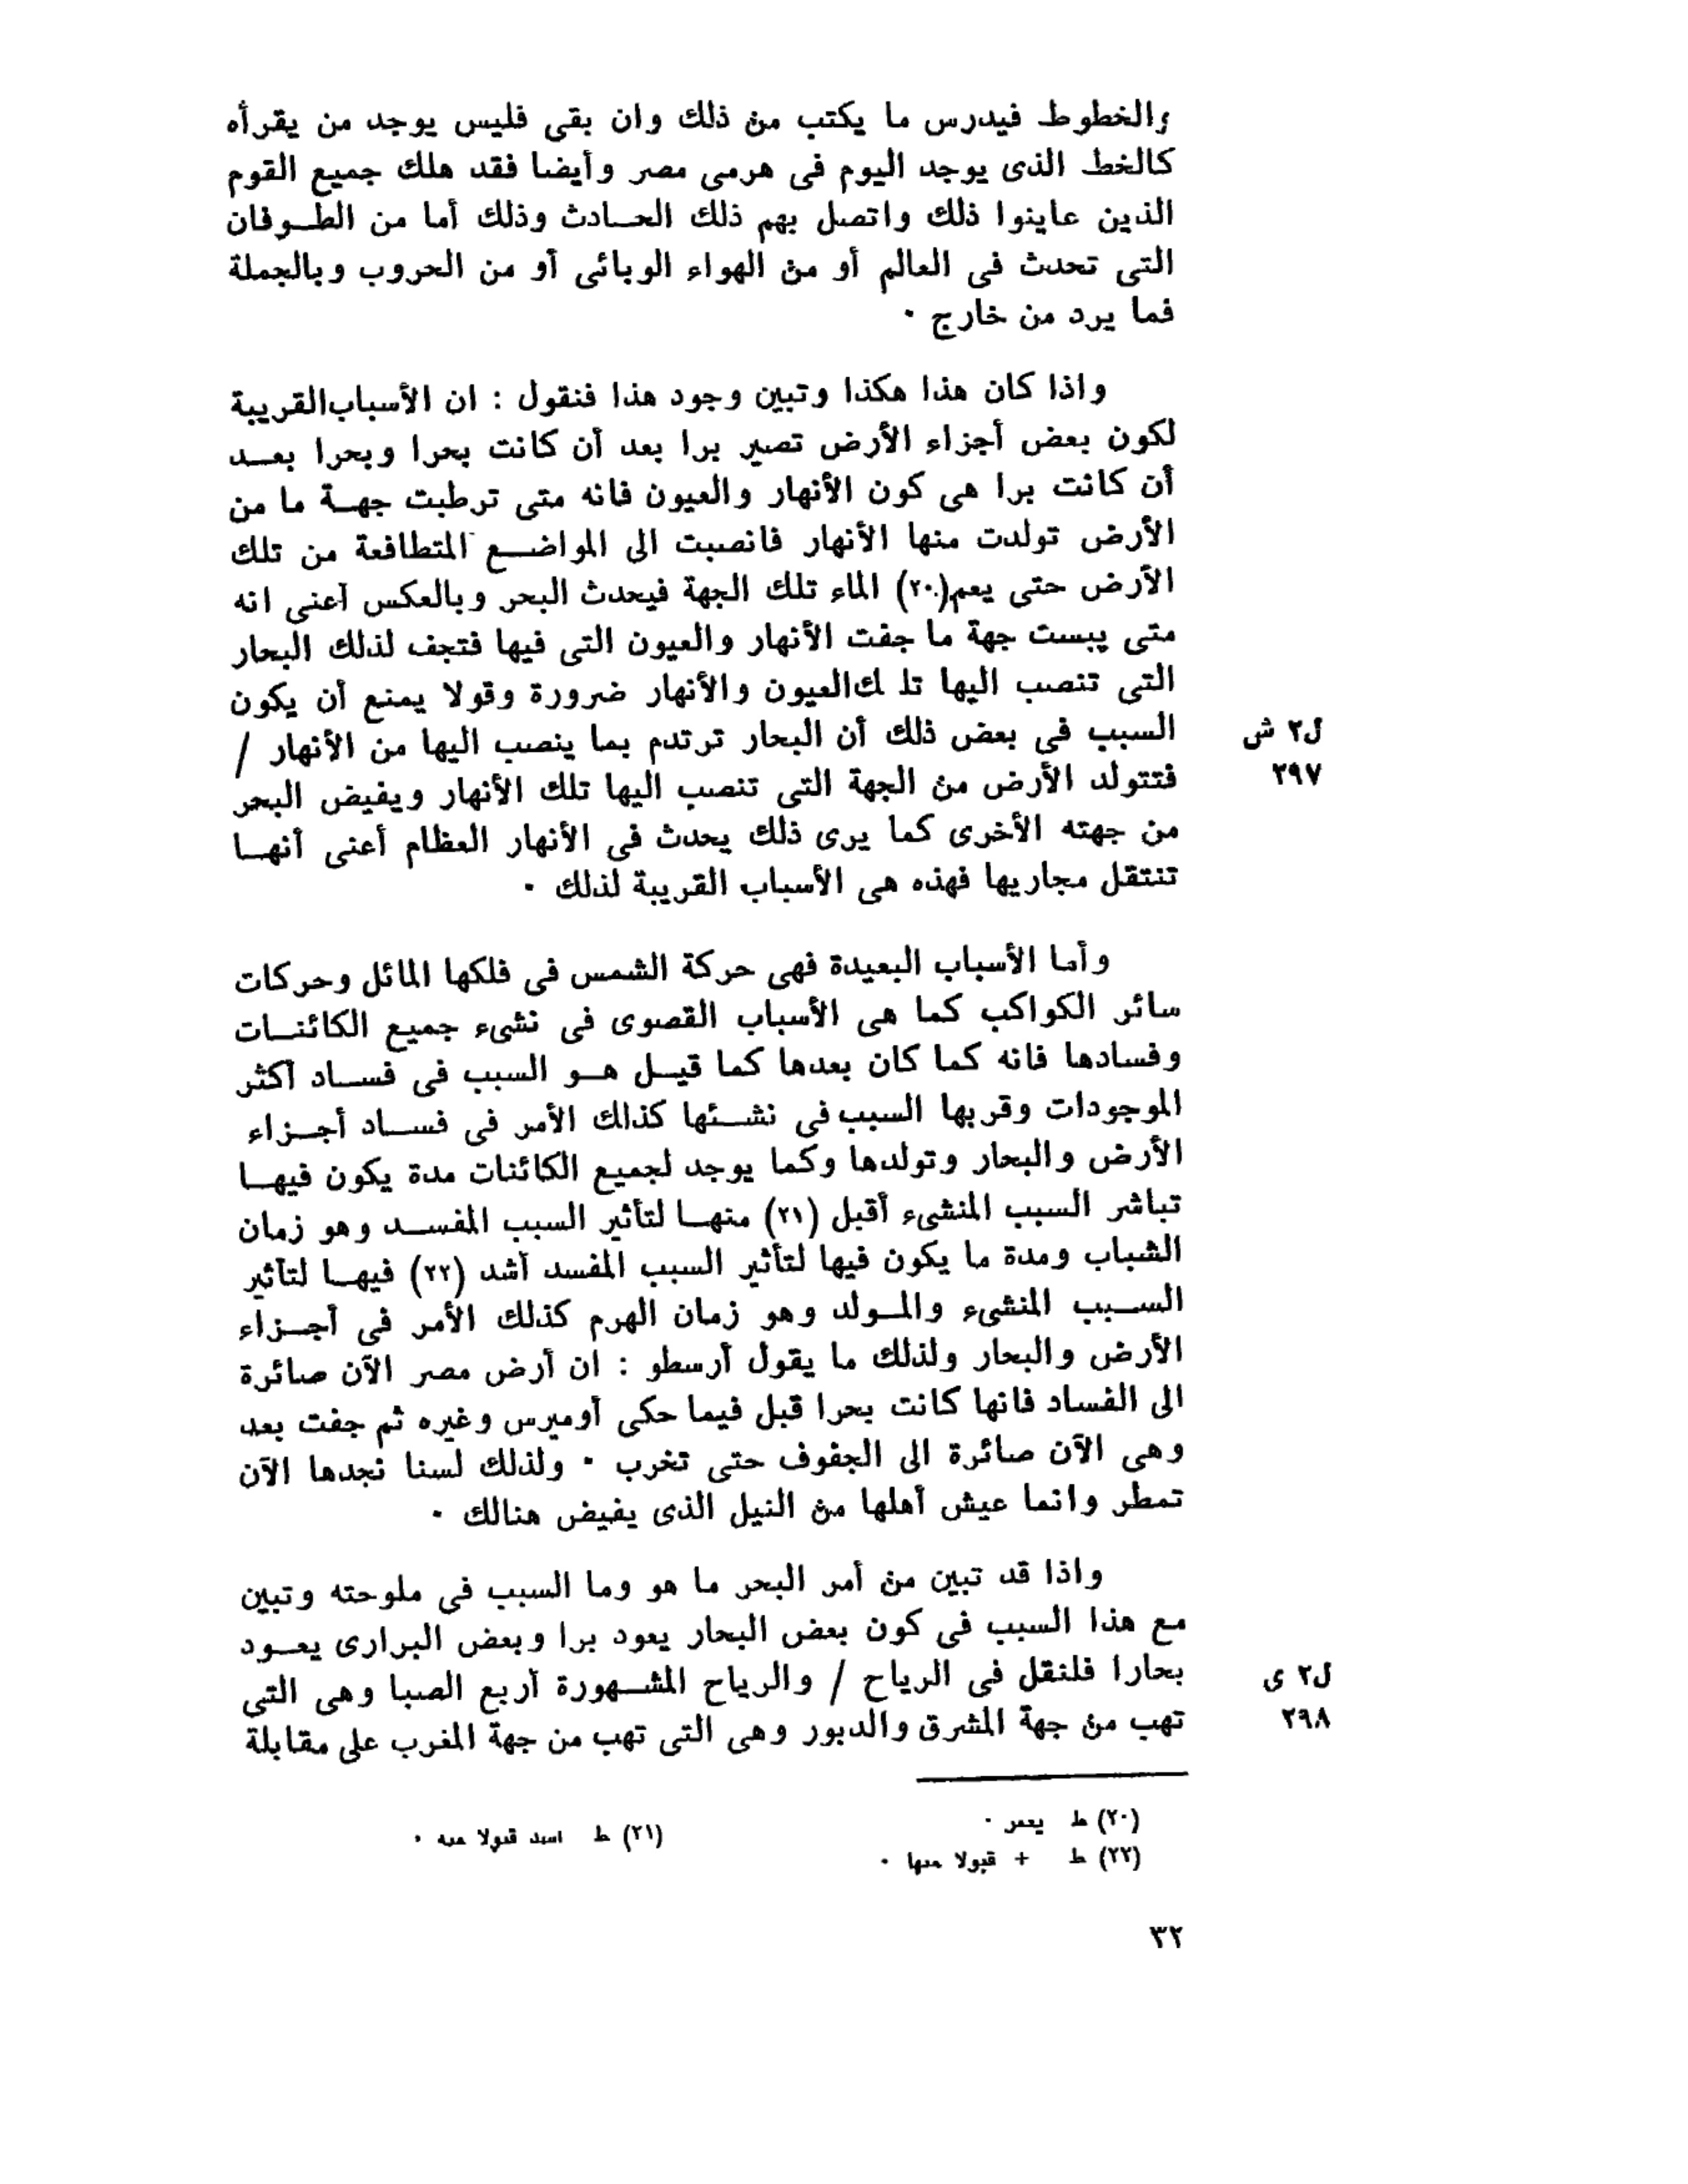 والخطوط فيدرس ما يكتب من ذلك وان بقى فليس يوجد من يقرأه
كالخط الذى يوجد اليوم فى هرمى مصر وأيضا فقد هلك جميع القوم
الذين عاينوا ذلك واتصل بهم ذلك الحادث وذلك أما من الطوفان
التى تحدث فى العالم أو من الهواء الوبائى أو من الحروب وبالجملة
فما يرد من خارج ٠
واذا كان هذا هكذا وتبين وجود هذا فنقول : ان الأسباب القريبة
لكون بعض أجزاء الأرض تصير برا بعد أن كانت بحرا وبحرا بعد
أن كانت برا هى كون الأنهار والعيون فانه متى ترطبت جهة ما من
الأرض تولدت منها الأنهار فانصبت الى المواضع المتطافعة من تلك
الأرض حتى يعم(٢٠) الماء تلك الجهة فيحدث البحر وبالعكس أعنى انه
متى يبست جهة ما جفت الأنهار والعيون التى فيها فتجف لذلك البحار
التى تنصب اليها تلك العيون والأنهار ضرورة وقولا يمنع أن يكون
السبب فى بعض ذلك أن البحار ترتدم بما ينصب اليها من الأنهار /
ل٢ ش
٢٩٧
فتتولد الأرض من الجهة التى تنصب اليها تلك الأنهار ويفيض البحر
من جهته الأخرى كما يرى ذلك يحدث فى الأنهار العظام أعنى أنها
تنتقل مجاريها فهذه هى الأسباب القريبة لذلك ٠
وأما الأسباب البعيدة فهى حركة الشمس فى فلكها المائل وحركات
سائر الكواكب كما هى الأسباب القصوى فى نشىء جميع الكائنات
وفسادها فانه كما كان بعدها كما قيل هو السبب فى فساد أكثر
الموجودات وقربها السبب فى نشئها كذلك الأمر فى فساد أجزاء
الأرض والبحار وتولدها وكما يوجد لجميع الكائنات مدة يكون فيها
تباشر السبب المنشىء أقبل (٢١) منها لتأثير السبب المفسد وهو زمان
الشباب ومدة ما يكون فيها لتأثير السبب المفسد أشد (٢٢) فيها لتأثير
السبب المنشىء والمولد وهو زمان الهرم كذلك الأمر فى أجزاء
الأرض والبحار ولذلك ما يقول أرسطو : ان أرض مصر الآن صائرة
الى الفساد فانها كانت بحرا قبل فيما حكى أوميرس وغيره ثم جفت بعد
وهى الآن صائرة الى الجفوف حتى تخرب ٠ ولذلك لسنا نجدها الآن
تمطر وانما عيش أهلها من النيل الذى يفيض هنالك ٠
واذا قد تبين من أمر البحر ما هو وما السبب فى ملوحته وتبين
مع هذا السبب فى كون بعض البحار يعود برا وبعض البرارى يعود
بحارا فلنقل فى الرياح / والرياح المشهورة أربع الصبا وهى التى
ل٢ ى
٢٩٨
تهب من جهة المشرق والدبور وهى التى تهب من جهة المغرب على مقابلة
(٢٠) ط يعمر ٠
(٢١) ط اشد قبولا منه ٠
(٢٢) ط + قبولا منها ٠
٣٢